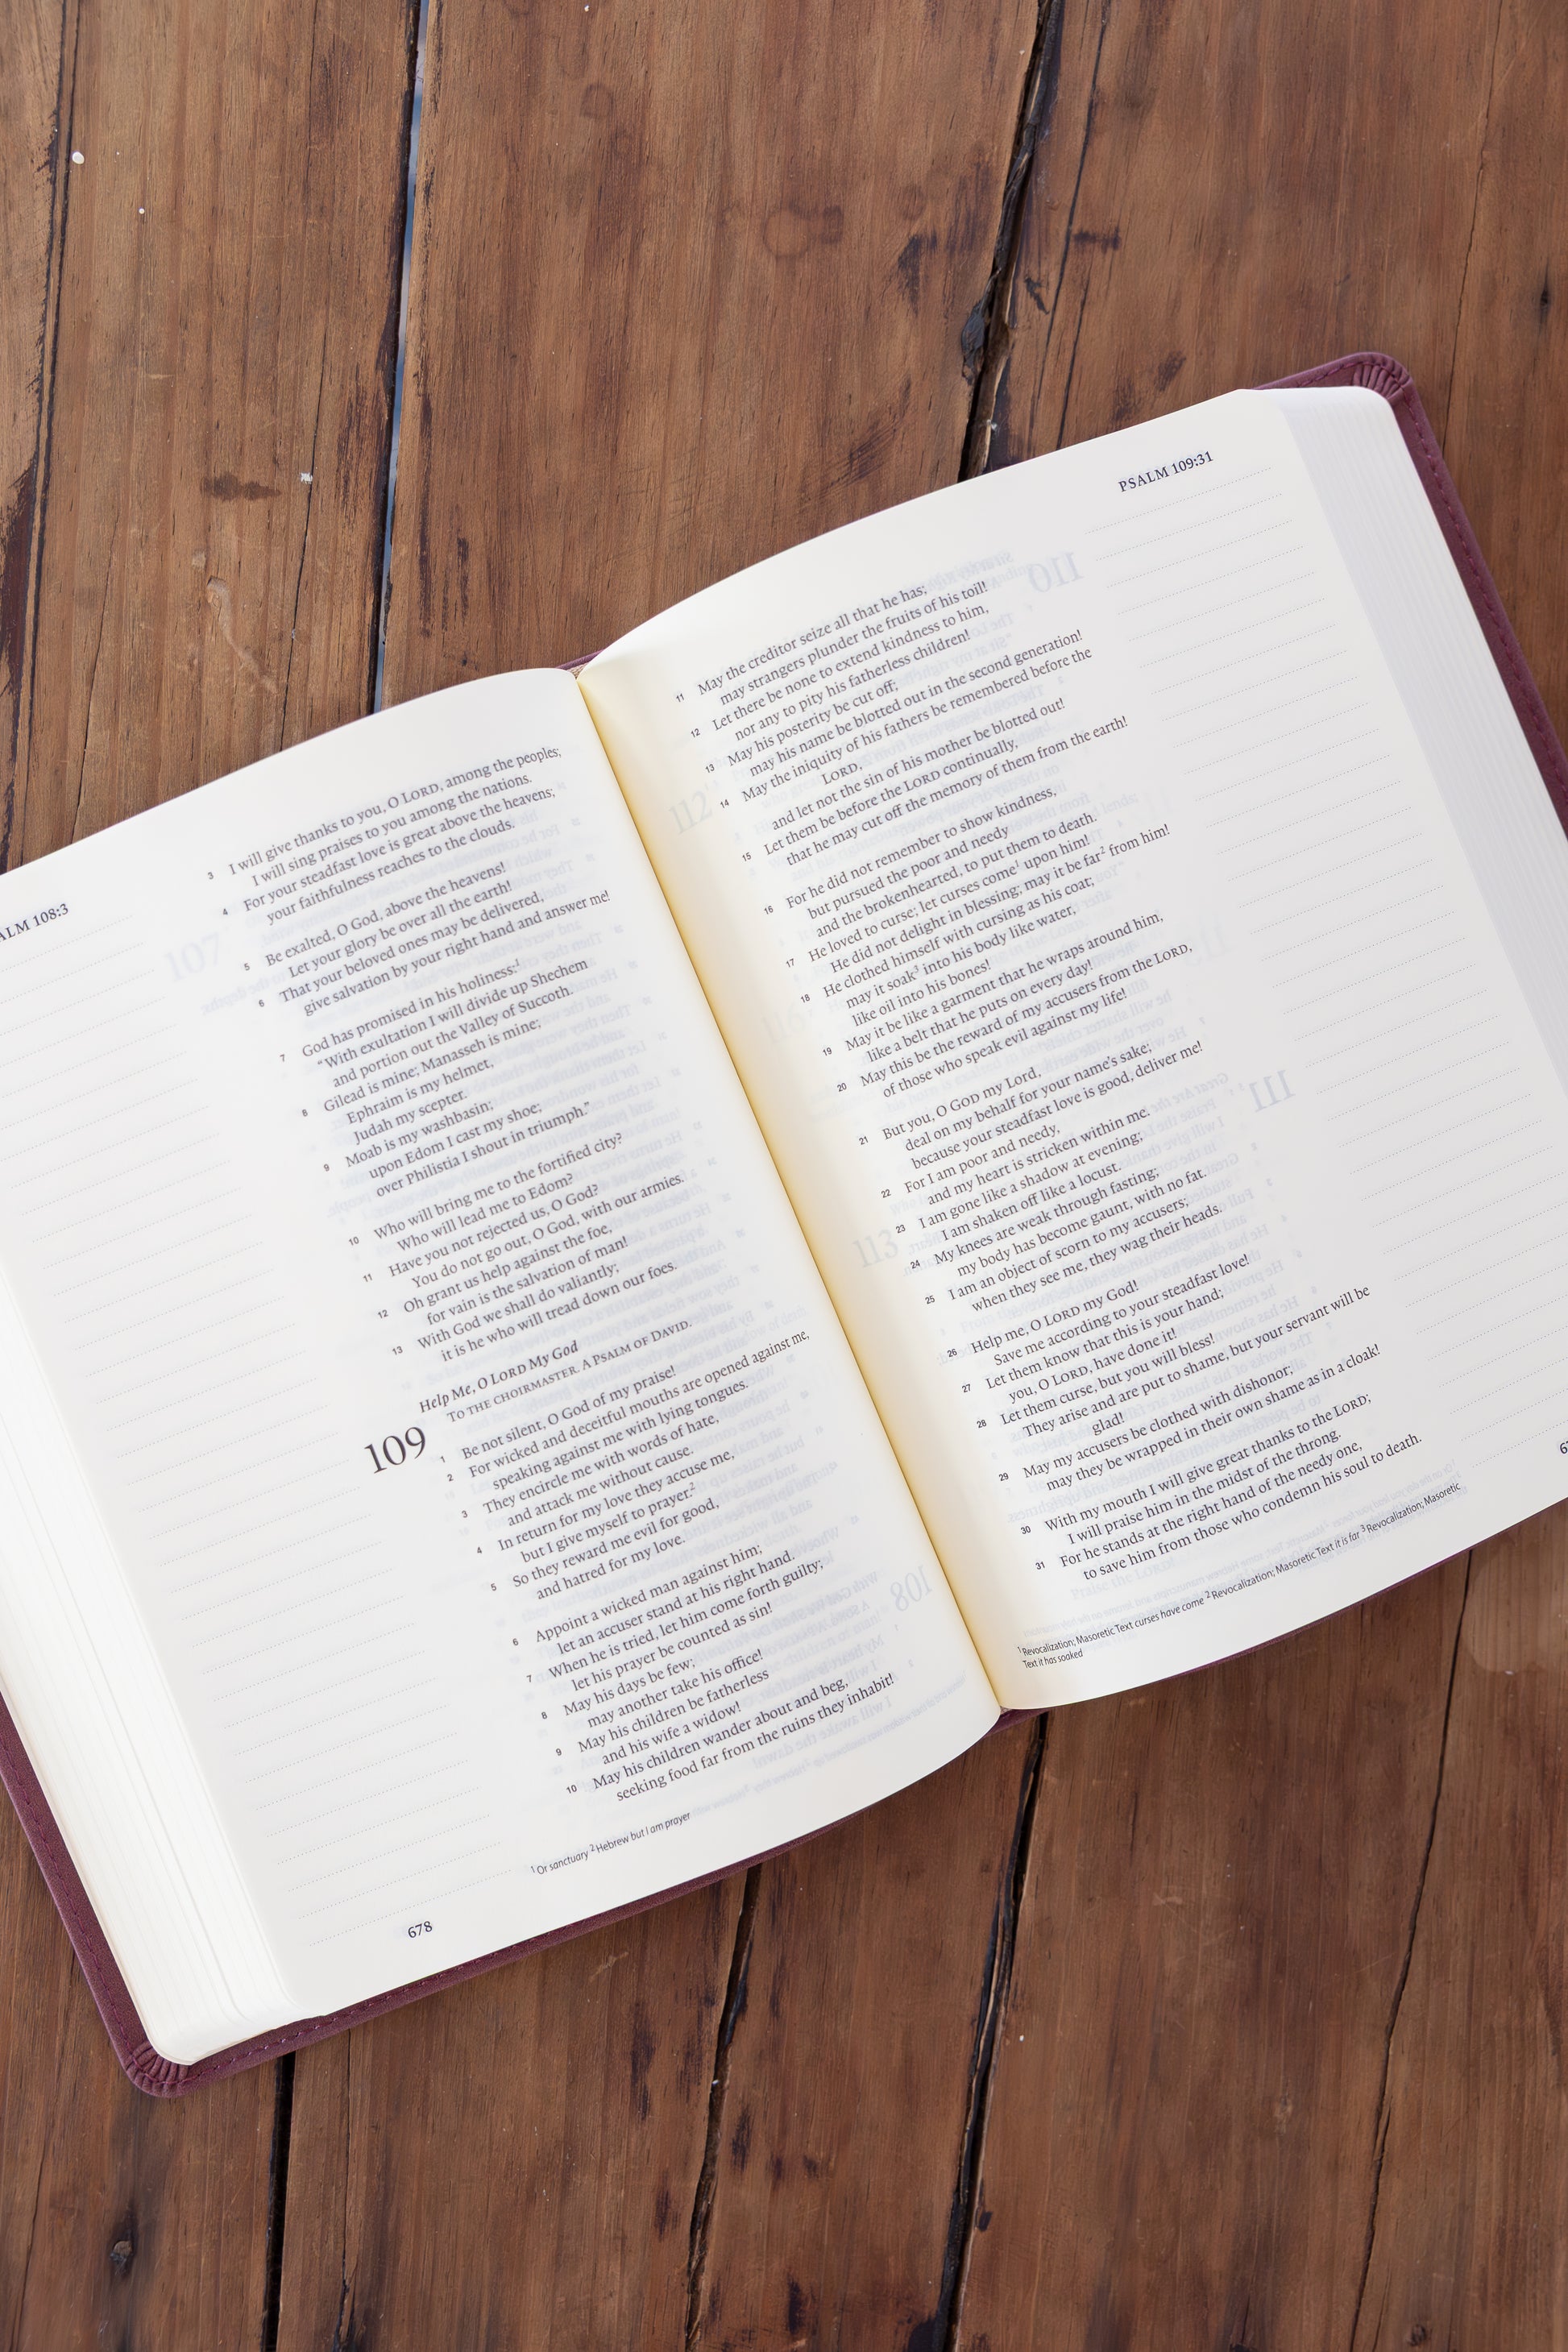 ALM 108:3
3 I will give thanks to you, O LORD, among the peoples;
I will sing praises to you among the nations.
4 For your steadfast love is great above the heavens;
your faithfulness reaches to the clouds.
5 Be exalted, O God, above the heavens!
Let your glory be over all the earth!
6 That your beloved ones may be delivered,
give salvation by your right hand and answer me!
7 God has promised in his holiness:1
“With exultation I will divide up Shechem
and portion out the Valley of Succoth.
8 Gilead is mine; Manasseh is mine;
Ephraim is my helmet,
Judah my scepter.
9 Moab is my washbasin;
upon Edom I cast my shoe;
over Philistia I shout in triumph.”
10 Who will bring me to the fortified city?
Who will lead me to Edom?
11 Have you not rejected us, O God?
You do not go out, O God, with our armies.
12 Oh grant us help against the foe,
for vain is the salvation of man!
13 With God we shall do valiantly;
it is he who will tread down our foes.
Help Me, O LORD My God
TO THE CHOIRMASTER. A PSALM OF DAVID.
109 1 Be not silent, O God of my praise!
2 For wicked and deceitful mouths are opened against me,
speaking against me with lying tongues.
3 They encircle me with words of hate,
and attack me without cause.
4 In return for my love they accuse me,
but I give myself to prayer.2
5 So they reward me evil for good,
and hatred for my love.
6 Appoint a wicked man against him;
let an accuser stand at his right hand.
7 When he is tried, let him come forth guilty;
let his prayer be counted as sin!
8 May his days be few;
may another take his office!
9 May his children be fatherless
and his wife a widow!
10 May his children wander about and beg,
seeking food far from the ruins they inhabit!
1 Or sanctuary 2 Hebrew but I am prayer
678
PSALM 109:31
11 May the creditor seize all that he has;
may strangers plunder the fruits of his toil!
12 Let there be none to extend kindness to him,
nor any to pity his fatherless children!
13 May his posterity be cut off;
may his name be blotted out in the second generation!
14 May the iniquity of his fathers be remembered before the
LORD,
and let not the sin of his mother be blotted out!
15 Let them be before the LORD continually,
that he may cut off the memory of them from the earth!
16 For he did not remember to show kindness,
but pursued the poor and needy
and the brokenhearted, to put them to death.
17 He loved to curse; let curses come1 upon him!
He did not delight in blessing; may it be far2 from him!
18 He clothed himself with cursing as his coat;
may it soak3 into his body like water,
like oil into his bones!
19 May it be like a garment that he wraps around him,
like a belt that he puts on every day!
20 May this be the reward of my accusers from the LORD,
of those who speak evil against my life!
21 But you, O GOD my Lord,
deal on my behalf for your name’s sake;
because your steadfast love is good, deliver me!
22 For I am poor and needy,
and my heart is stricken within me.
23 I am gone like a shadow at evening;
I am shaken off like a locust.
24 My knees are weak through fasting;
my body has become gaunt, with no fat.
25 I am an object of scorn to my accusers;
when they see me, they wag their heads.
26 Help me, O LORD my God!
Save me according to your steadfast love!
27 Let them know that this is your hand;
you, O LORD, have done it!
28 Let them curse, but you will bless!
They arise and are put to shame, but your servant will be
glad!
29 May my accusers be clothed with dishonor;
may they be wrapped in their own shame as in a cloak!
30 With my mouth I will give great thanks to the LORD;
I will praise him in the midst of the throng.
31 For he stands at the right hand of the needy one,
to save him from those who condemn his soul to death.
1 Revocalization; Masoretic Text curses have come 2 Revocalization; Masoretic Text it is far 3 Revocalization; Masoretic
Text it has soaked